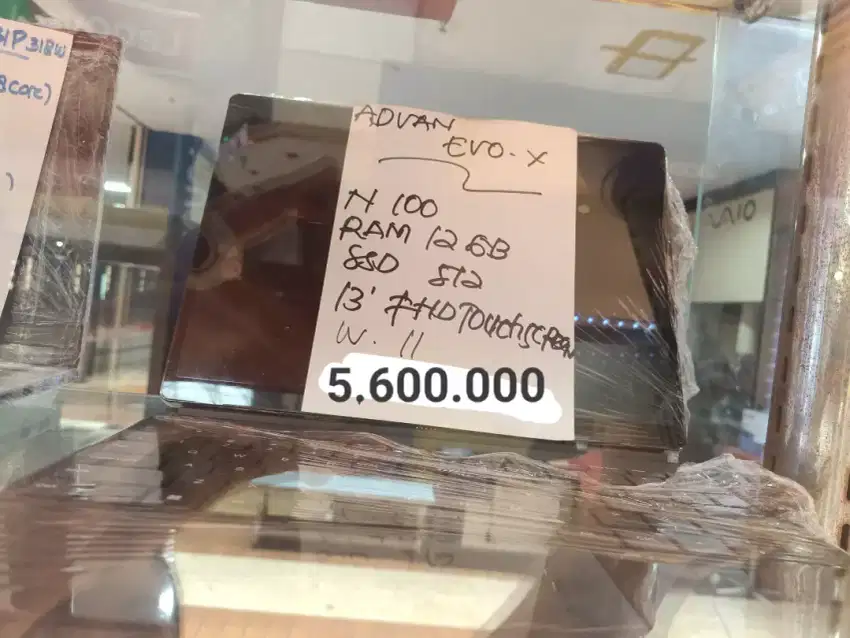 31P318W
8Core)
)
ADVAN
EVO-X
N 100
RAM 12 GB
SSD 512
13' FHD Touchscreen
W. 11
5,600.000
VAIO